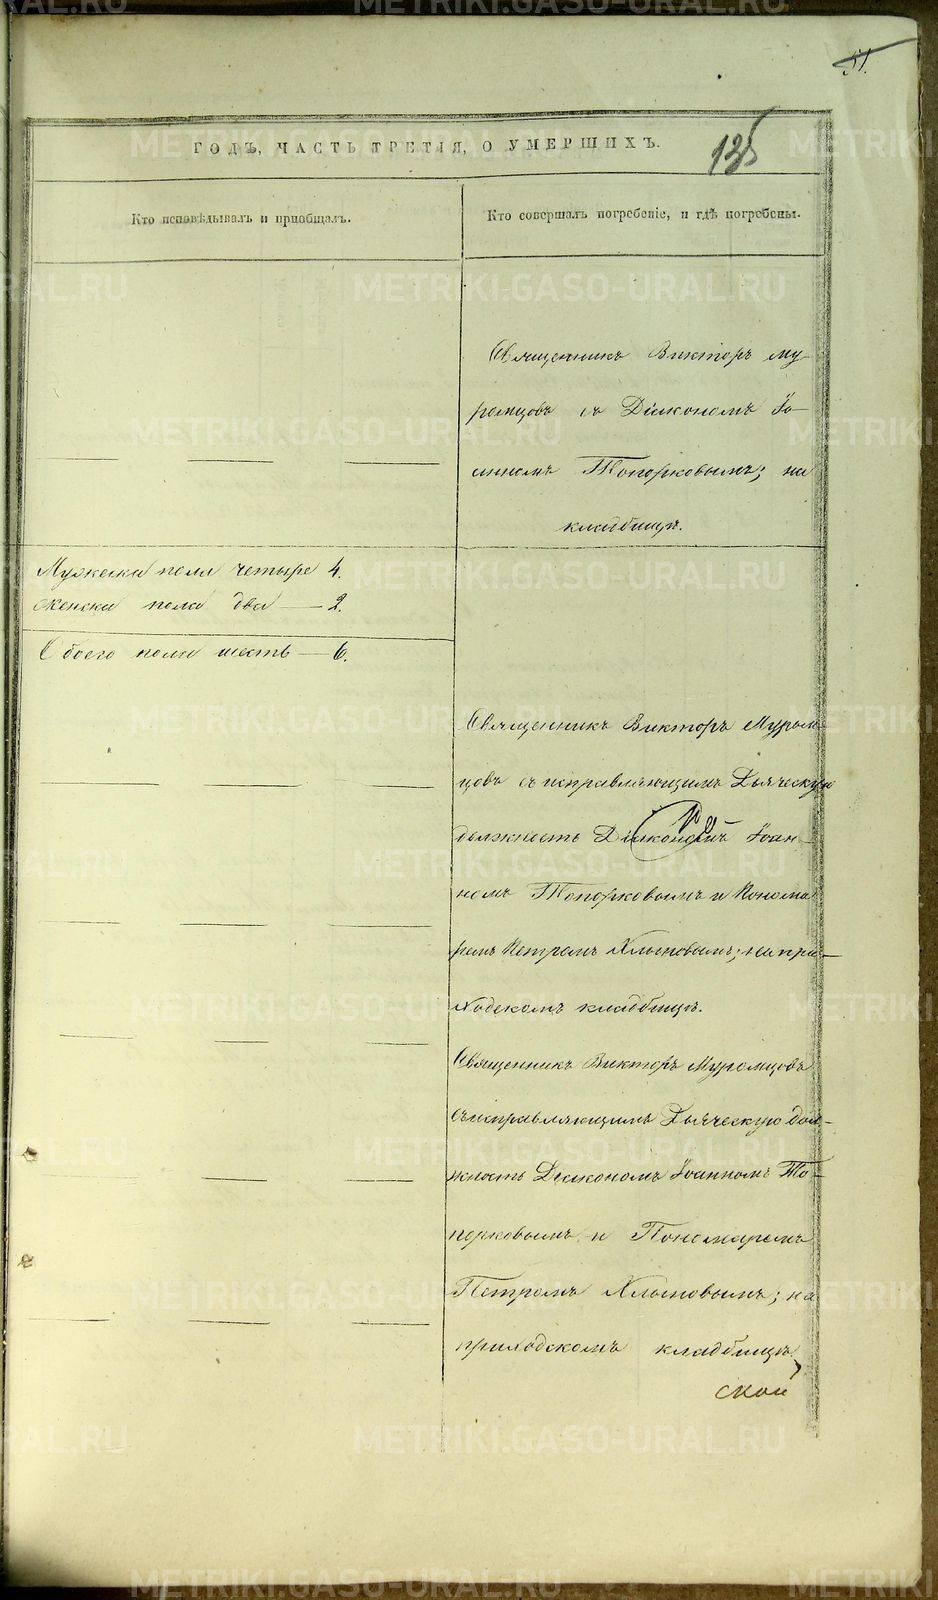 51.
ГОДЪ, ЧАСТЬ ТРЕТІЯ, О УМЕРШИХЪ.
125
Кто исповѣдывалъ и пріобщалъ.
Кто совершалъ погребеніе, и гдѣ погребены.
Священникъ Викторъ Му-
ромцовъ съ Діакономъ Іо-
анномъ Топорковымъ; на
кладбищѣ.
Мужеска пола четыре 4.
Женска пола два — 2.
Обоего пола шесть — 6.
Священникъ Викторъ Муром-
цовъ съ исправляющимъ Дьяческую
должность Діакономъ Іоан-
номъ Топорковымъ и Понома
ремъ Петромъ Хлыновымъ; на при-
ходскомъ кладбищѣ.
Священникъ Викторъ Муромцовъ
съ исправляющимъ Дьяческую дол-
жность Діакономъ Іоанномъ То-
порковымъ и Пономаремъ
Петромъ Хлыновымъ; на
приходскомъ кладбищѣ.
ской
METRIKI.GASO-URAL.RU